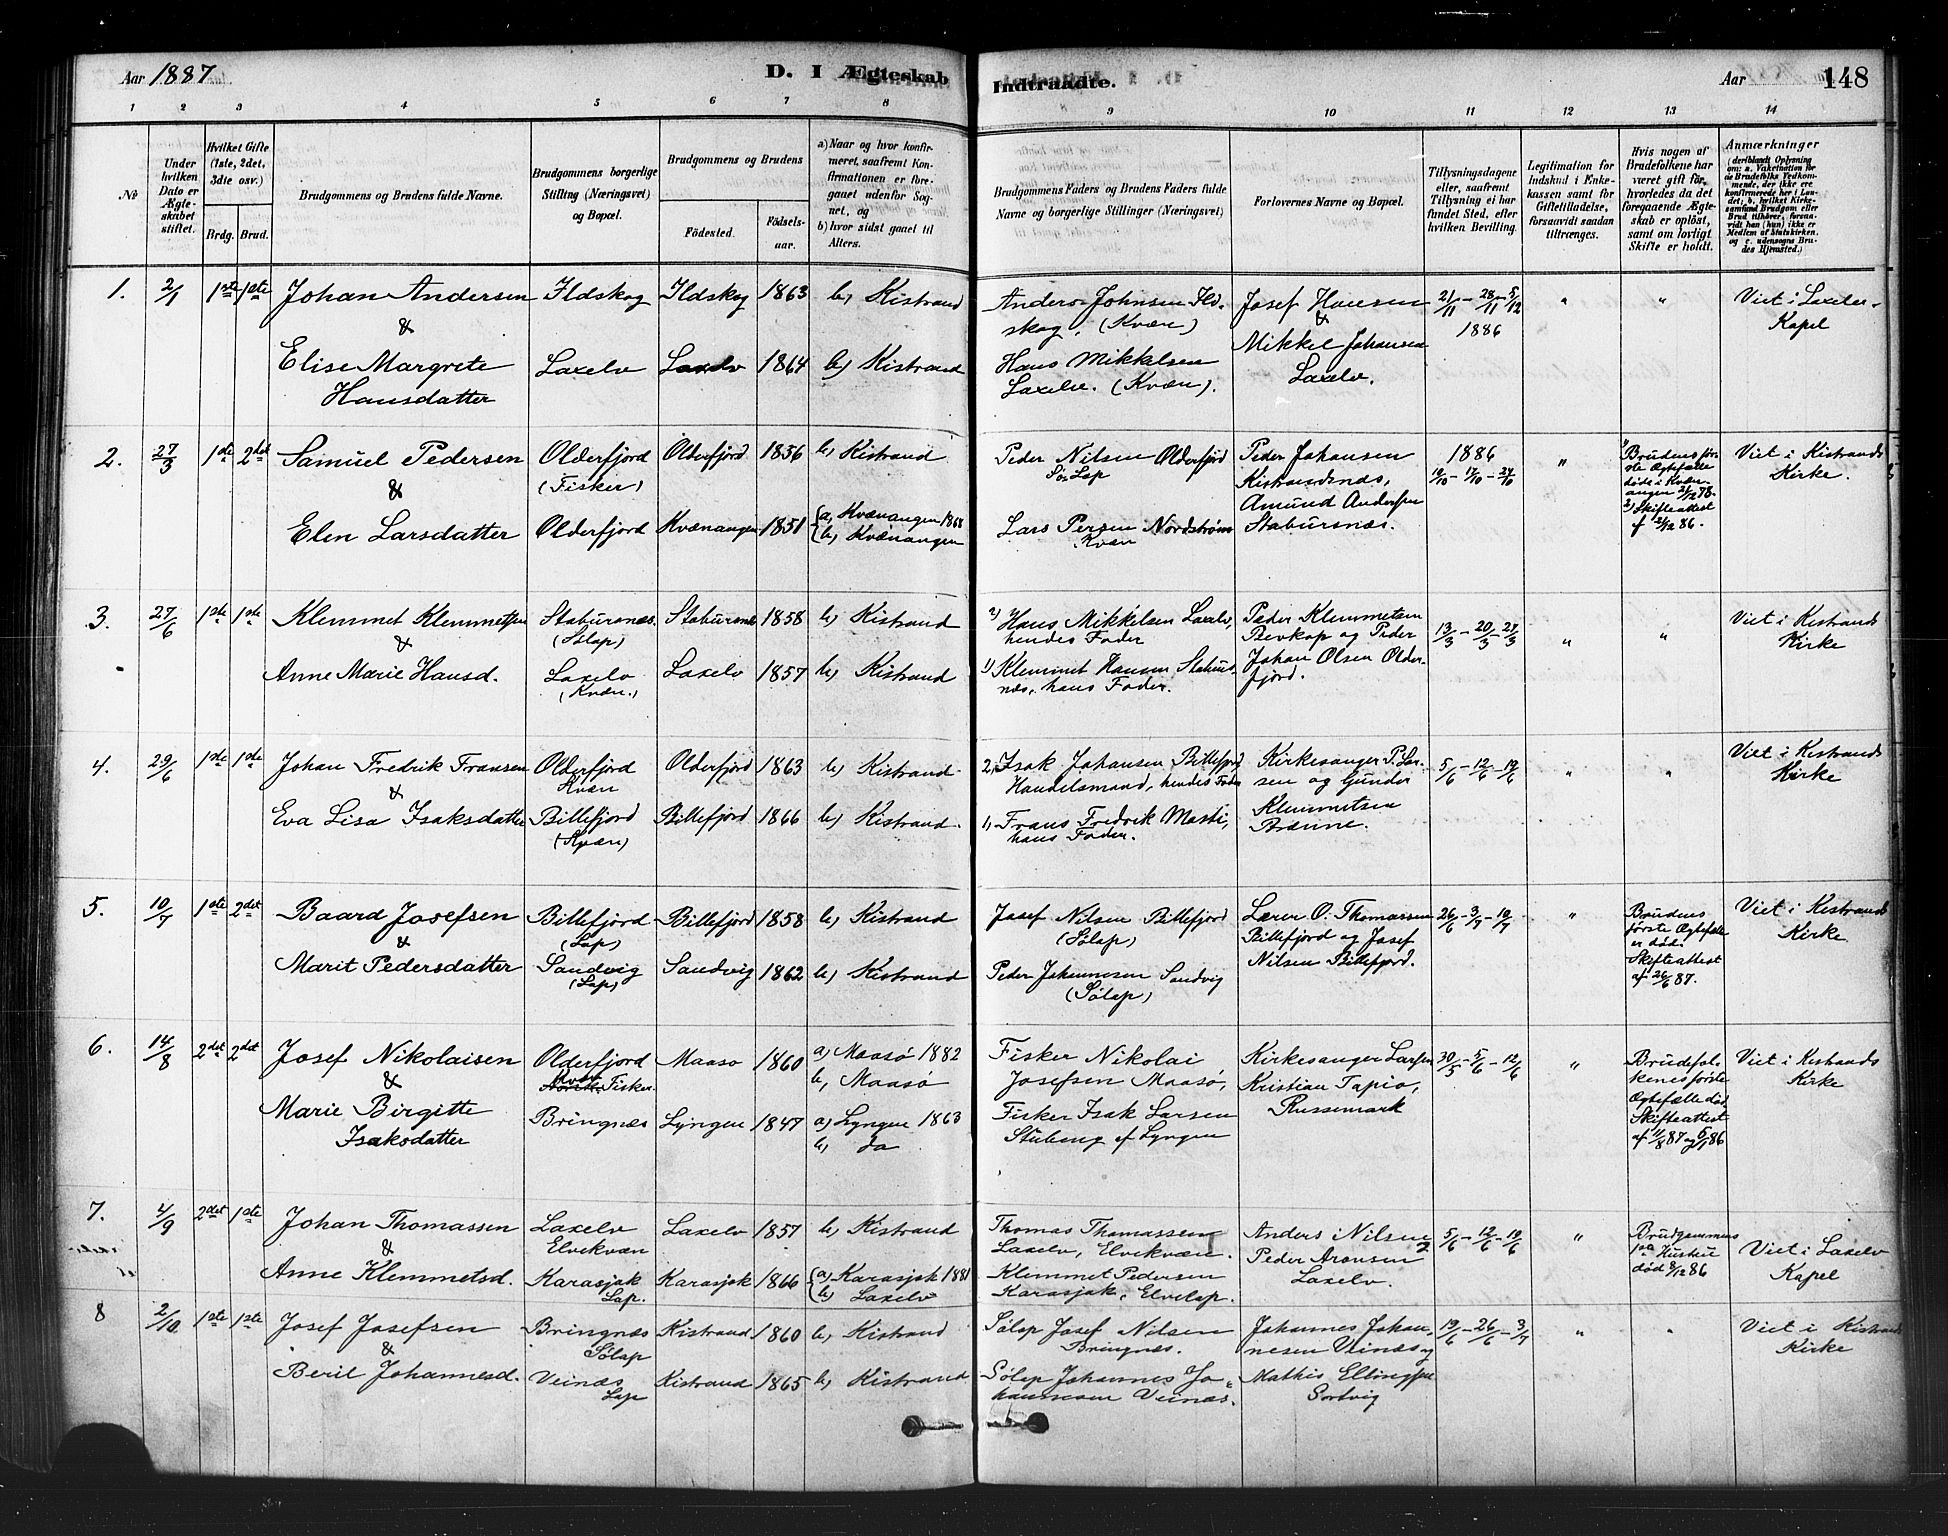 Aar 1887
D. I Ægteskab
Indtraadte.
Aar
148
1 2 3 4 5 6 7 8 9 10 11 12 13 14
No
Under hvilken Dato er Ægteskabet stiftet.
Hvilket Gifte (1ste, 2det, 3die osv.)
Brdg. Brud.
Brudgommens og Brudens fulde Navne.
Brudgommens borgerlige Stilling (Næringsvei) og Bopæl.
Brudgommens og Brudens
Fødested.
Fødselsaar.
a) Naar og hvor konfirmeret, saafremt Konfirmationen er foregaaet udenfor Sognet, og
b) hvor sidst gaaet til Alters.
Brudgommens Faders og Brudens Faders fulde Navne og borgerlige Stillinger (Næringsvei)
Forlovernes Navne og Bopæl.
Tillysningsdagene eller, saafremt Tillysning ei har fundet Sted, efter hvilken Bevilling.
Legitimation for Indskud i Enkekassen samt for Giftetilladelse, forsaavidt saadan tiltrænges.
Hvis nogen af Brudefolkene har været gift før, hvorledes da det foregaaende Ægteskab er opløst, samt om lovligt Skifte er holdt.
Anmærkninger
1. 2/1 1ste 1ste Johan Andersen Ildskog Ildskog 1863 b) Kistrand
&
Elise Margrete Laxelv Laxelv 1864 b) Kistrand
Hansdatter
Anders Johnsen Ildskog, (Kvæn)
Hans Mikkelsen
Laxelv. (Kvæn).
Josef Hansen
&
Mikkel Johansen
Laxelv.
21/11 - 28/11 - 5/12
1886
" "
Viet i Laxelv
Kapel
2. 27/3 1ste 2det Samuel Pedersen Olderfjord Olderfjord 1856 b) Kistrand
& (Fisker)
Elen Larsdatter Olderfjord Kvænangen 1851 a) Kvænangen 1868
b) Kvænangen
Peder Nilsen Olderfjord
Sølap
Lars Persen Nordstrøm
Kvæn
Peder Johansen
Kistrandsnæs,
Amund Andersen
Stabursnæs.
1886
10/10 - 17/10 - 24/10
"
Brudens første Ægtefælle
døde i Kvænangen 2/12 78.
2) Skifteattest
af 2/12 86.
Viet i Kistrands
Kirke.
3. 27/6 1ste 1ste Klemmet Klemmetsen Stabursnæs. Stabursnæs 1858 b) Kistrand
& (Sølap)
Anne Marie Hansd. Laxelv Laxelv 1857 b) Kistrand
(Kvæn.)
2) Hans Mikkelsen Laxelv,
hendes Fader
1) Klemmet Hansen Stabursnæs,
hans Fader.
Peder Klemmetsen
Bevkop og Peder
Johan Olsen Olderfjord.
13/3 - 20/3 - 27/3
" "
Viet i Kistrands
Kirke
4. 29/6 1ste 1ste Johan Fredrik Fransen Olderfjord Olderfjord 1863 b) Kistrand
& Kvæn
Eva Lisa Isaksdatter Billefjord Billefjord 1866 b) Kistrand.
(Kvæn)
2) Isak Johansen Billefjord
Handelsmand, hendes Fader
1) Frans Fredrik Masti,
hans Fader.
Kirkesanger P. Larsen
og Gunder
Klemmetsen
Brænne.
5/6 - 12/6 - 19/6
" "
Viet i Kistrands
Kirke
5. 10/7 1ste 2det Baard Josefsen Billefjord Billefjord 1858 b) Kistrand
& (Lap)
Marit Pedersdatter Sandvig Sandvig 1862 b) Kistrand
(Lap)
Josef Nilsen Billefjord
(Sølap)
Peder Johannesen Sandvig
(Sølap)
Lærer O. Thomassen
Billefjord og Josef
Nilsen Billefjord.
26/6 - 3/7 - 10/7
"
Brudens
første Ægtefælle
er død.
Skifteattest
af 26/6 87.
Viet i Kistrands
Kirke
6. 14/8 2det 2det Josef Nikolaisen Olderfjord Maasø 1860 a) Maasø 1882
& Kvæn Fisker. b) Maasø
Marie Birgitte Bringnæs Lyngen 1847 a) Lyngen 1863
Isaksdatter b) Do
Fisker Nikolai
Josefsen Maasø,
Fisker Isak Larsen
Stubeng af Lyngen
Kirkesanger Larsen
Kristian Tapio,
Russemark
30/5 - 5/6 - 12/6
"
Brudefolkenes første
Ægtefælle død
Skifteattest
af 4/8 87 og 5/1 86
Viet i Kistrands
Kirke
7. 4/9 2det 1ste Johan Thomassen Laxelv Laxelv 1857 b) Kistrand
& Elvekvæn
Anne Klemmetsd. Karasjok Karasjok 1866 a) Karasjok 1881
Lap. b) Laxelv
Thomas Thomassen
Laxelv, Elvekvæn.
Klemmet Pedersen
Karasjok, Elvelap.
Anders Nilsen
Peder Aronsen
Laxelv.
5/6 - 12/6 - 19/6
"
Brudgommens
1ste Hustru
død 8/12 86
Viet i Laxelv
Kapel
8 2/10 1ste 1ste Josef Josefsen Bringnæs Kistrand 1860 b) Kistrand
& Sølap
Berit Johannesd. Veinæs Kistrand 1865 b) Kistrand
Lap
Sølap Josef Nilsen
Bringnæs.
Sølap Johannes Johannesen
Veinæs.
Johannes Johannesen
Veinæs og
Mathis Ellingsen
Sortvig
19/6 - 26/6 - 3/7
" "
Viet i Kistrands
Kirke